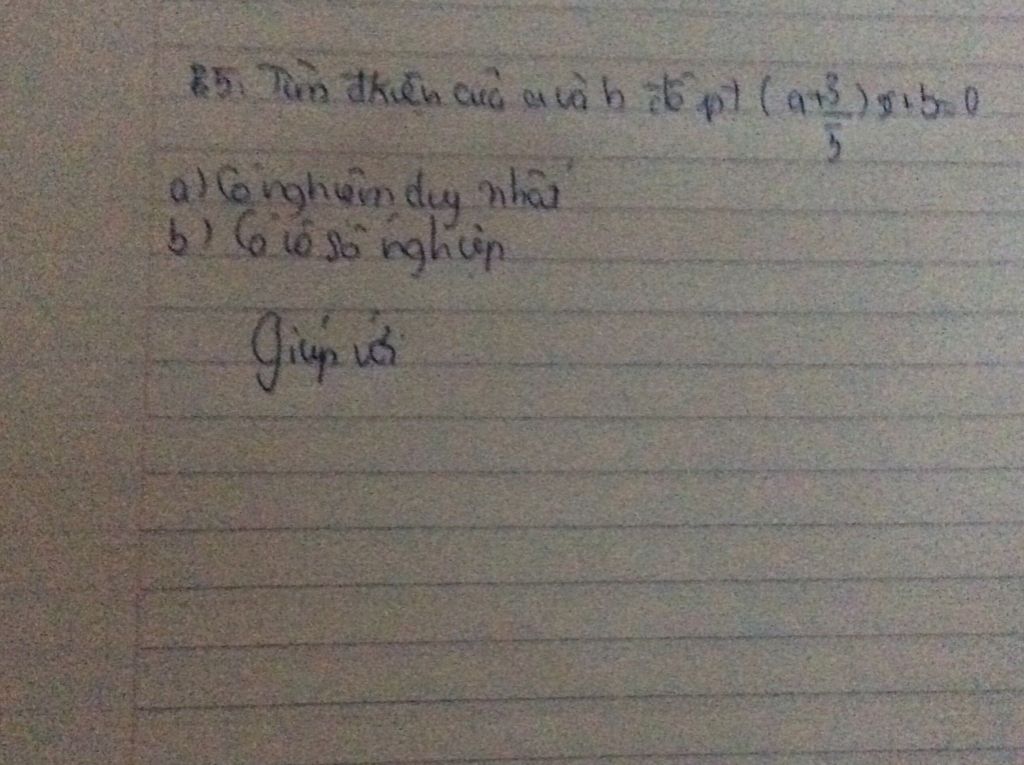 B5. Tìm đkiện của a và b để pt (a+3/5)x+b=0
a) Có nghiệm duy nhất
b) Có vô số nghiệp
Giúp với